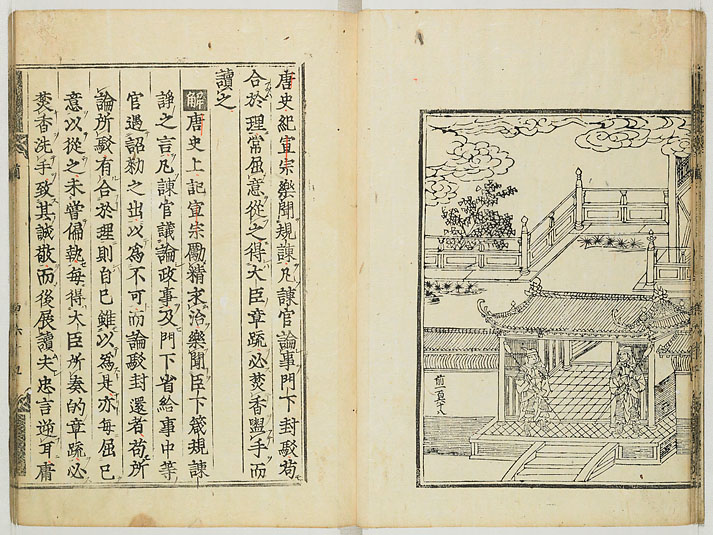 唐史紀宣宗樂聞規諫凡諫官論事門下封駁苟
合於理常屈意從之得大臣章疏必焚香盥手而
讀之
解唐史上記宣宗勵精求治樂聞臣下箴規諫
諍之言凡諫官議論政事及門下省給事中等
官遇詔勅之出以爲不可而論駁封還者苟所
論所駁有合於理則自己雖以爲是亦每屈己
意以從之未嘗偏執每得大臣所奏的章疏必
焚香洗手致其誠敬而後展讀夫忠言逆耳庸